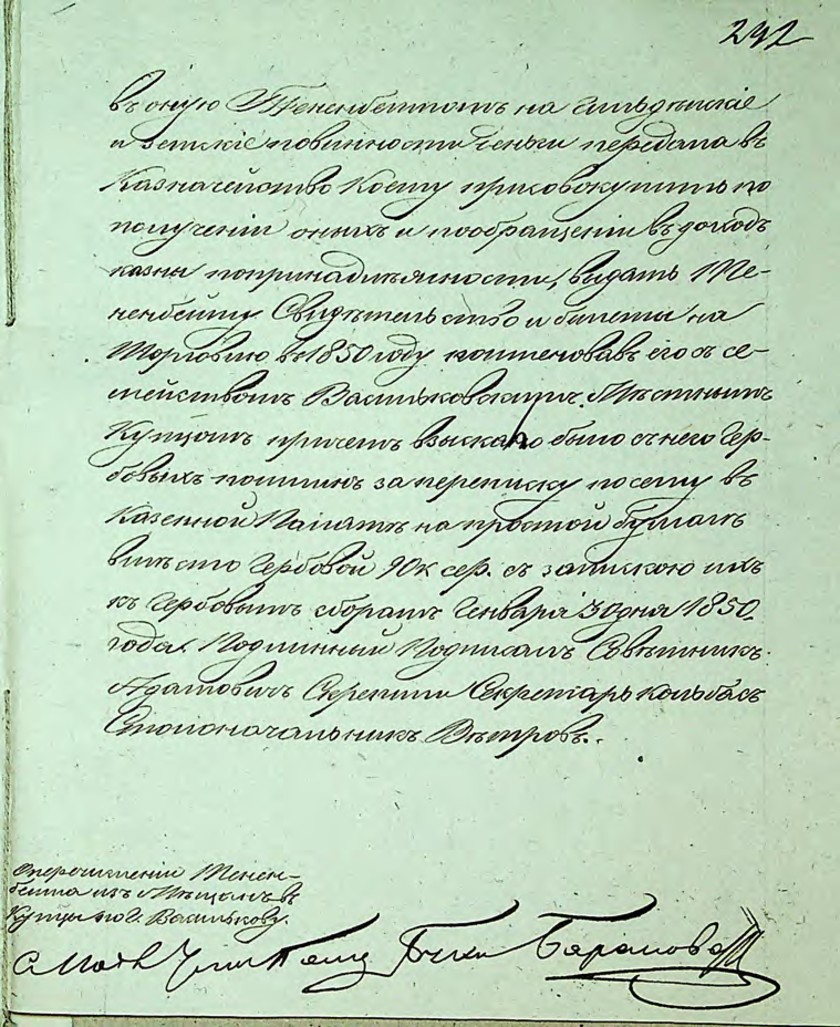 292
въ оную Тененбеймомъ на гильдейскіе
и земскіе повинности деньги передала въ
Казначейство коему присовокупить по
полученіи оныхъ и по обращеніи въ доходъ
казны по принадлежности, выдать Те-
ненбейму Свидѣтельство и билеты на
Торговлю въ 1850 году поименовавъ его съ се-
мействомъ Васильковскимъ Мѣстнымъ
Купцомъ причемъ взыскано было съ него Гер-
бовыхъ пошлинъ за переписку по сему въ
Казенной Палатѣ на простой бумагѣ
вмѣсто Гербовой 90 к сер. съ запискою ихъ
къ Гербовымъ сборамъ Генваря 30 дня 1850.
года. Подлинный Подписалъ Совѣтникъ
Адамовичъ Скрепили Секретарь Кольбасъ
Столоначальникъ Вѣтровъ.
О перечисленіи Тенен-
бейма изъ Мѣщанъ въ
Купцы по г. Василькову.